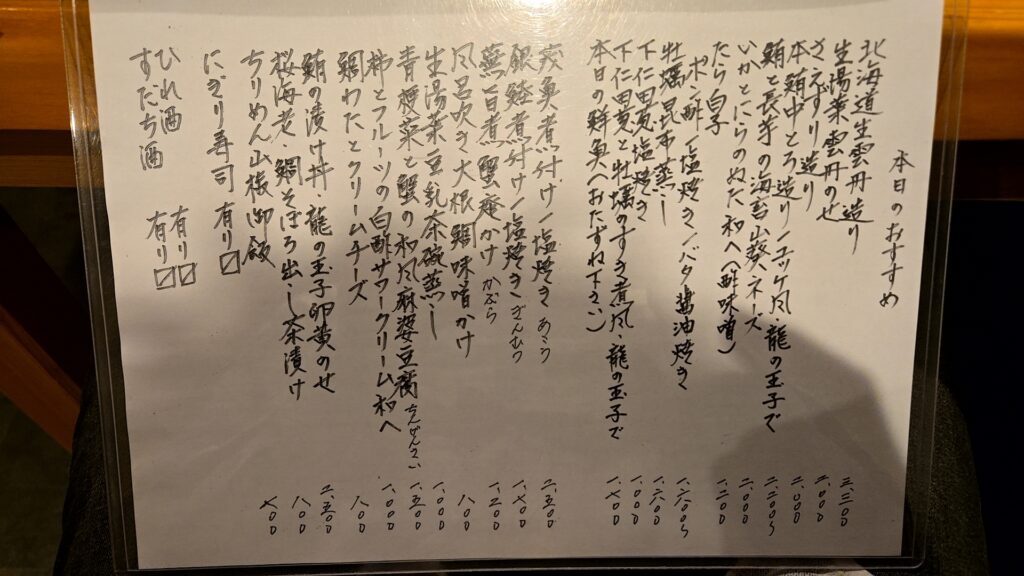 本日のおすすめ
北海道生雲丹造り 三、三〇〇
生湯葉雲丹のせ 二、〇〇〇
さえずり造り 二、〇〇〇
本鮪中とろ造り/ユッケ風・龍の玉子で 二、二〇〇より
鮪と長芋の海苔山葵マヨネーズ
いかとにらのぬた和へ(酢味噌)
たら白子
ポン酢/塩焼き/バタ醤油焼き 一、六〇〇より
牡蠣昆布蒸し
下仁田葱塩焼き
下仁田葱と牡蠣のすき煮風・龍の玉子で
本日の鮮魚(おたずね下さい)
煮魚煮付け/塩焼き
銀鱈煮付け/塩焼き ぎんむつ
蕪旨煮蟹餡かけ かぶら
風呂吹き大根鯛味噌かけ 八〇〇
生湯葉豆乳茶碗蒸し 一、〇〇〇
青梗菜と蟹の和風麻婆豆腐 ちんげんさい 一、五〇〇
柿とフルーツの白酢サワークリーム和へ 一、〇〇〇
鯛わたとクリームチーズ 八〇〇
鮪の漬け丼 龍の玉子卵黄のせ 二、五〇〇
桜海老・鯛そぼろ出し茶漬け 八〇〇
ちりめん山椒御飯 七〇〇
にぎり寿司 有り☑
ひれ酒 有り☑
すだち酒 有り☑